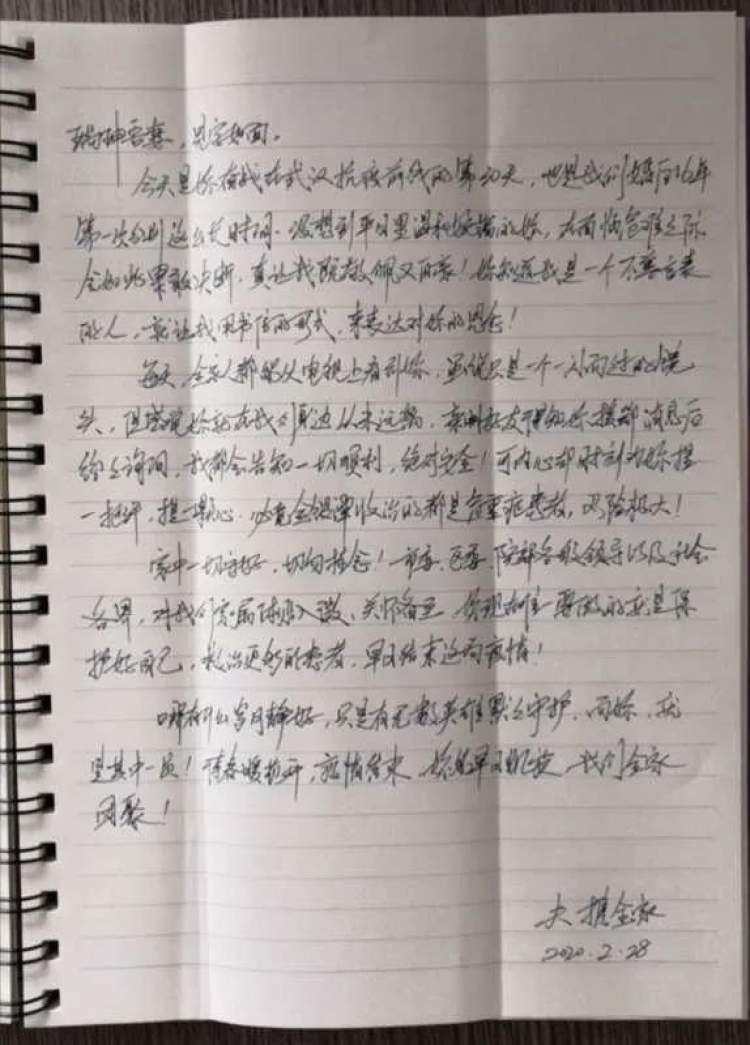 吾妻，见字如面。
今天是你奋战在武汉抗疫前线的第30天，也是我们婚后16年
第一次分别这么长时间。没想到平日里温和的你，在面临危难之际
会如此果敢决断，真让我既敬佩又心疼！你知道我是一个不善言表
的人，就让我用书信的形式，来表达对你的思念！
每天，全家人都能从电视上看到你，虽说只是一个一闪而过的镜
头，但感觉你就在我们身边从未远离，亲朋好友得知你援鄂消息后
纷纷询问，我都会告知一切顺利，绝对安全！可内心却时刻为你捏
一把汗，提一颗心。必竟金银潭收治的都是危重症患者，风险极大！
家中一切安好，切勿挂念！市委、区委、院部各级领导以及社会
各界，对我们家属体贴入微、关怀备至，你现在主要做的就是保
护好自己，救治更多的患者，早日结束这场疫情！
哪有什么岁月静好，只是有无数英雄默默守护，而你，就
是其中一员！待春暖花开，疫情结束，你能早日凯旋，我们全家
团聚！
夫携全家
2020.2.28